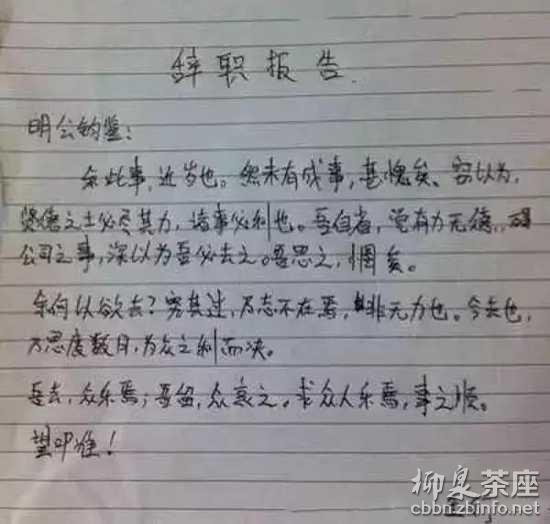 辞职报告.
明公钧鉴:
余此事,近岁也。然未有成事,甚愧矣。窃以为,
贤德之士必尽其力,诸事必利也。吾自省,觉有力无德,碍
公司之事,深以为吾必去之。吾思之,惆矣。
余何以欲去?穷其过,乃志不在焉,非无力也。今去也,
乃思度数月,为众之利而决。
吾去,众乐焉;吾留,众哀之。求众人乐焉,事之顺。
望叩准!
柳泉茶座
cbbn.zbinfo.net